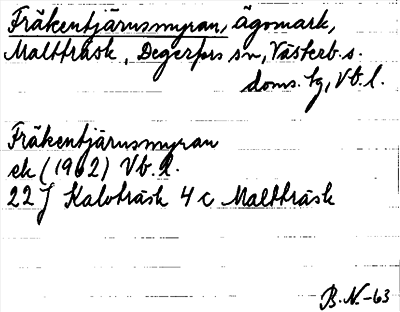 Fräkentjärnsmyran, ägomark,
Maltträsk, Degerfors sn, Västerb.s.
doms. tg, Vb. l.
Fräkentjärnsmyran
ek (1962) Vb. l.
22 J Kalvträsk 4 c Maltträsk
B.N.-63